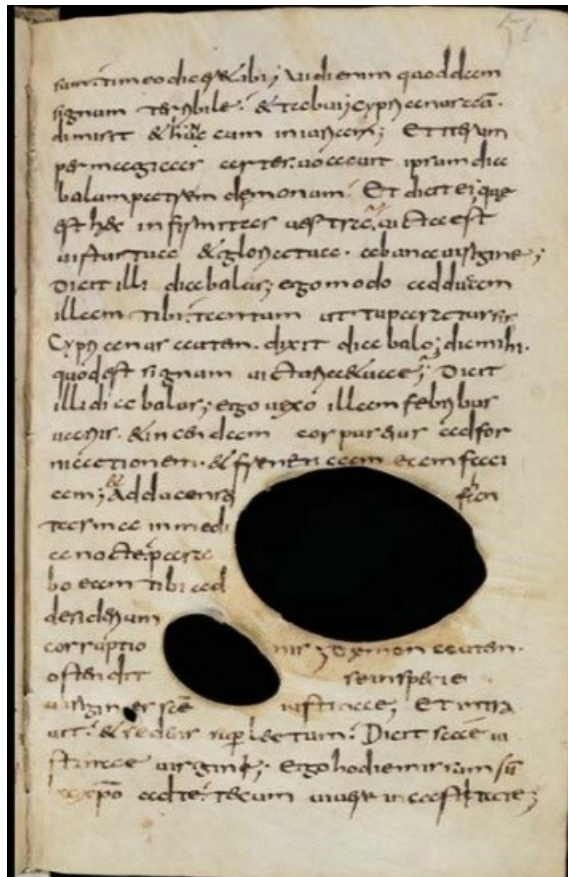 sum. timeo dicere & ibi; vidi enim quoddam
signum terribile. &
dimisit & hunc eum inanem; Et iterum
per magicas artes. vocavit ipsum dia
balum patrem demonum. Et dicit ei; que
est hec infirmitas vestra. victa est
virtus tua & gloria tua. ab una virgine;
Dicit illi diabalus; ergo modo adducam
illam tibi. tantum ut tu paratus sis
Cyprianus autem. dixit diabalo; dic mihi.
quod est signum victoriae tuae; Dicit
illi diabalus; ergo vexo illam febribus
variis. & incendam corpus eius ad for
nicationem. & freneticam eam faci
am; & Adducens
tasma in medi
a nocte. para
bo eam tibi ad
desiderium
corruptio nis; Demon autem.
ostendit se in specie
virginis sce iustinae; Et intra
vit. & sedens sup lectum. Dicit sce iu
stinae virgini; ergo hodie missa su
a xpo ad te. tecum vivere in castitate;